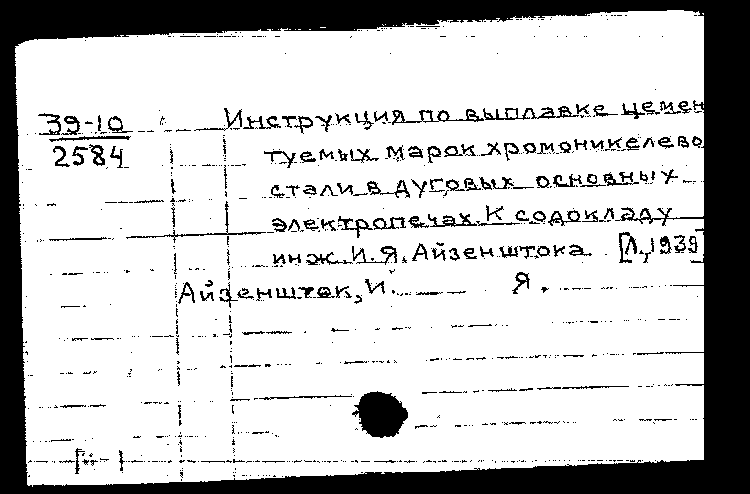 39-10
2584
Инструкция по выплавке цемен
туемых марок хромоникелево
стали в дуговых основных
электропечах. К содокладу
инж. И. Я. Айзенштока. [Л., 1939]
Айзеншток, И. Я.